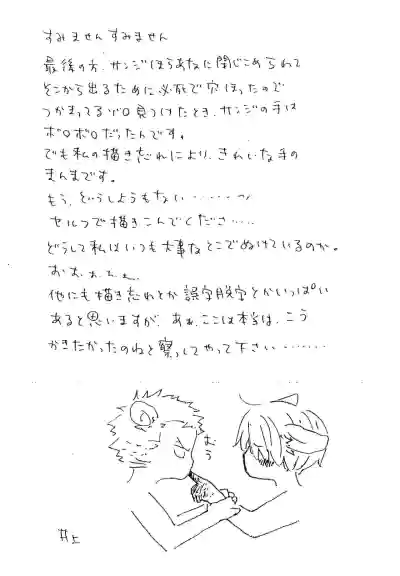 すみませんすみません
最後の方、サンジほらあなに閉じこめられて
そこから出るために必死で穴ほったので
つかまってるゾロ見つけたとき、サンジの手は
ボロボロだったんです。
でも私の描き忘れにより、きれいな手の
まんまです。
もう、どうしようもない………
セルフで描きこんでくださ……
どうして私はいつも大事なとこでぬけているのか。
おぉぉぇぇ
他にも描き忘れとか誤字脱字とかいっぱい
あると思いますが、あぁ、ここは本当は、こう
かきたかったのねと察してやって下さい………
むう
井上